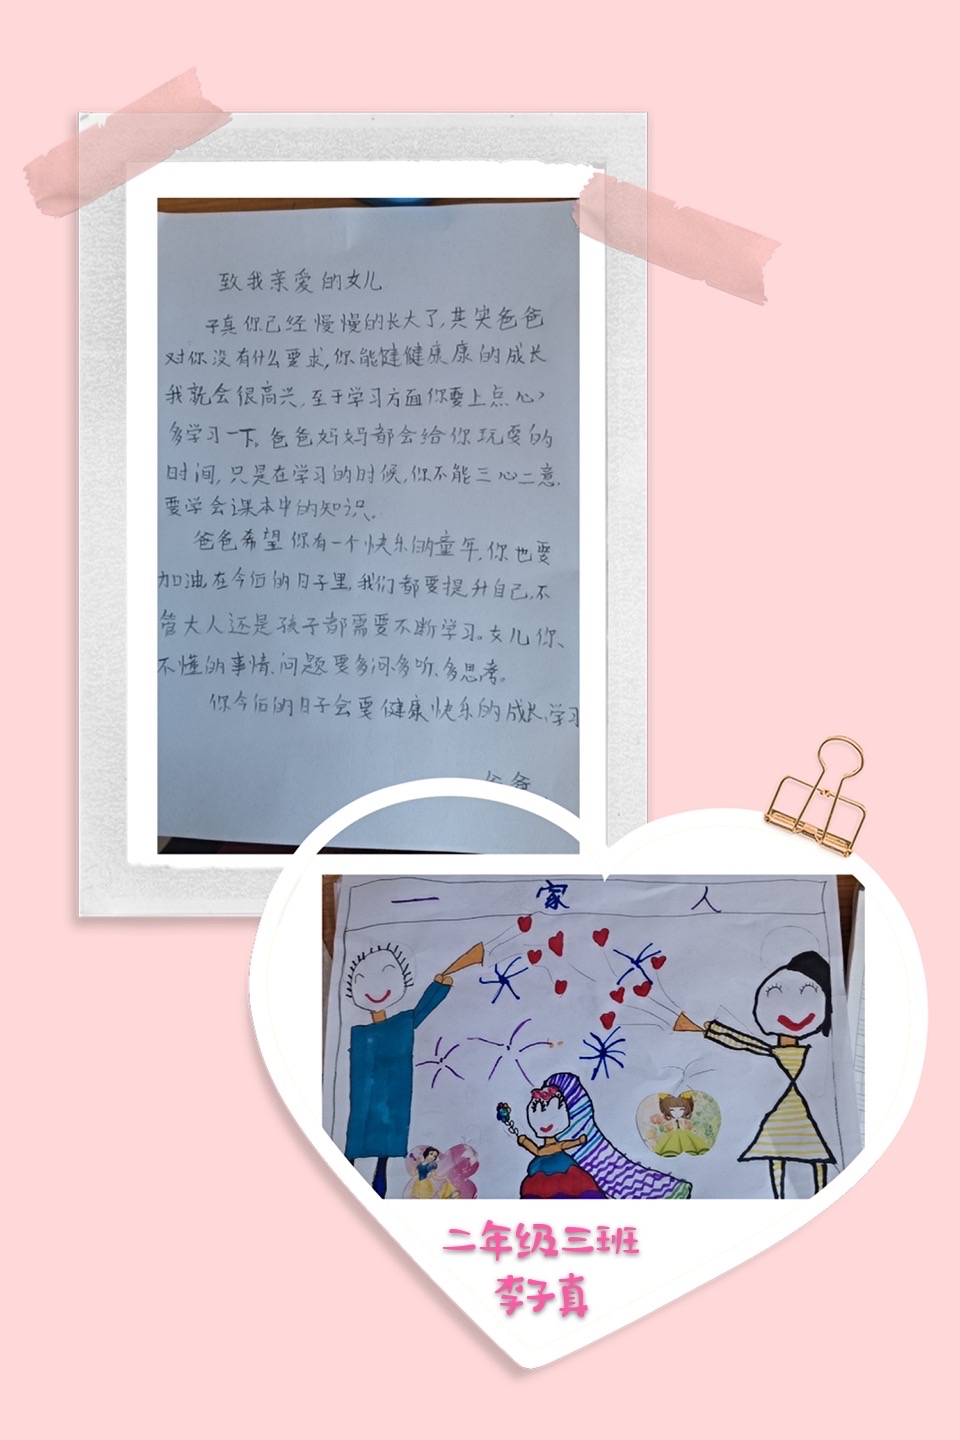 致我亲爱的女儿
子真你已经慢慢的长大了,其实爸爸
对你没有什么要求,你能健健康康的成长
我就会很高兴,至于学习方面你要上点心,
多学习一下。爸爸妈妈都会给你玩耍的
时间,只是在学习的时候,你不能三心二意,
要学会课本中的知识。
爸爸希望你有一个快乐的童年,你也要
加油,在今后的日子里,我们都要提升自己,不
管大人还是孩子都需要不断学习。女儿你、
不懂的事情、问题要多问、多听、多思考。
你今后的日子会要健康快乐的成长、学习
爸爸
一家人
二年级三班
李子真